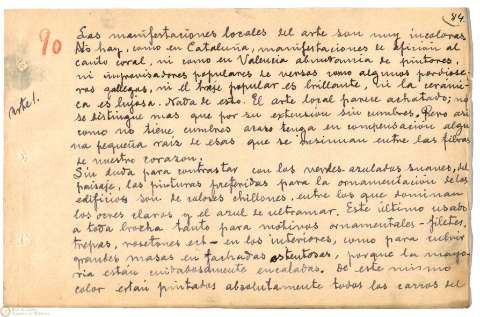 84
90
Las manifestaciones locales del arte son muy incoloras
No hay, como en Cataluña, manifestaciones de afición al
canto coral, ni como en Valencia abundancia de pintores,
ni improvisadores populares de versos como algunos pordiose-
ros gallegos, ni el traje popular es brillante, ni la cerámi-
ca es lujosa. Nada de esto. El arte local parece achatado; no
se distingue mas que por su extensión sin cumbres. Pero así
como no tiene cumbres acaso tenga en compensación algu
na pequeña raiz de esas que se insinuan entre las fibras
de nuestro corazon.
Arte!.
Sin duda para contrastar con los verdes-azulados suaves, del
paisaje, las pinturas preferidas para la ornamentación de los
edificios son de colores chillones, entre los que dominan
los ocres claros y el azul de ultramar. Este último usado
a toda brocha tanto para motivos ornamentales - filetes,
trepas, rosetones ect - en los interiores, como para cubrir
grandes masas en fachadas ostentosas, porque la mayo-
ria están cuidadosamente encaladas. De este mismo
color están pintados absolutamente todos los carros del